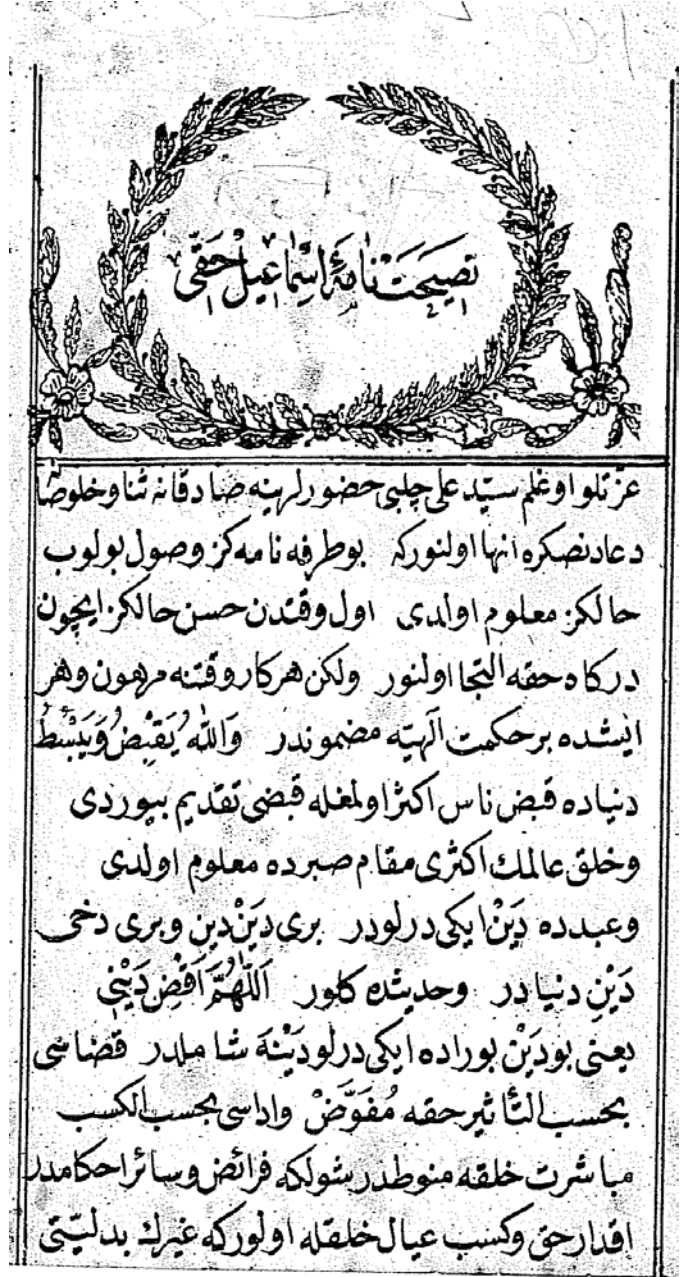 نصيحتنامۀ اسماعيل حقى
عزتلو اوغلم سيّد على چلبى حضورلرينه صادقانه ثنا و خلوصا
دعادنصكره انها اولنوركه بوطرفه نامه كز وصول بولوب
حالكز معلوم اولدى اول وقتدن حسن حالكز ايچون
دركاه حقه التجا اولنور ولكن هركار وقتنه مرهون وهر
ايشده برحكمت الٓهيّه مضموندر وَاللّٰهُ يَقْبِضُ وَيَبْسُطُ
دنياده قبض ناس اكثر اولمغله قبضى تقديم بيوردى
وخلق عالمك اكثرى مقام صبرده معلوم اولدى
وعبدده دَيْن ايكى درلودر برى دَيْنِ دين وبرى دخى
دَيْنِ دنيادر وحديثده كلور اَللّٰهُمَّ اَقْضِ دَيْنِى
يعنى بودَيْن بوراده ايكى درلو دَيْنَه شاملدر قضاسى
بحسب التأثير حقه مُفَوَّضْ واداسى بحسب الكسب
مباشرت خلقه منوطدر شولكه فرائض وسائر احكامدر
اقدار حق وكسب عيال خلقله اولوركه غيرك بدليّتى